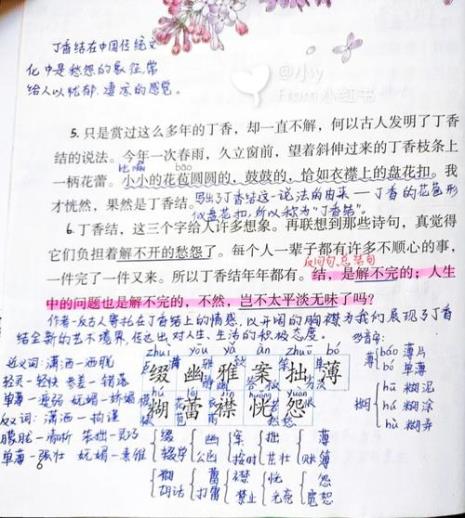 丁香结在中国传统文
化中是愁怨的象征,常
给人以忧郁、凄凉的感觉。
@小y
From 小红书
5. 只是赏过这么多年的丁香，却一直不解，何以古人发明了丁香
结的说法。今年一次春雨，久立窗前，望着斜伸过来的丁香枝条上
比喻 bāo
一柄花蕾。小小的花苞圆圆的，鼓鼓的，恰如衣襟上的盘花扣。我
才恍然，果然是丁香结。写出了丁香结这一说法的由来——丁香的花苞形
似盘花扣,所以称为"丁香结"。
6. 丁香结，这三个字给人许多想象。再联想到那些诗句，真觉得
它们负担着解不开的愁怨了。每个人一辈子都有许多不顺心的事，
反问句,总结句
一件完了一件又来。所以丁香结年年都有。结，是解不完的；人生
中的问题也是解不完的，不然，岂不太平淡无味了吗？
作者一反古人寄托在丁香结上的情感,以开阔的胸襟为我们展现了丁香
结全新的艺术境界,传达出对人生、生活的积极态度。
多音字:
zhuì yōu yǎ àn zhuō bó
近义词:潇洒—洒脱
缀 幽 雅 案 拙 薄
薄 báo 薄片
bó 单薄
轻灵—轻快 参差—错落
单薄—
hú lěi jīn huǎng yuàn
糊 蕾 襟 恍 怨
糊 hú 糊涂
反义词:潇洒—拘谨
朦胧—清晰 笨拙—灵巧
单薄—强壮
缀 幽 案 拙 薄
糊 蕾 襟 恍 怨
胡话 打雷 禁止 光亮